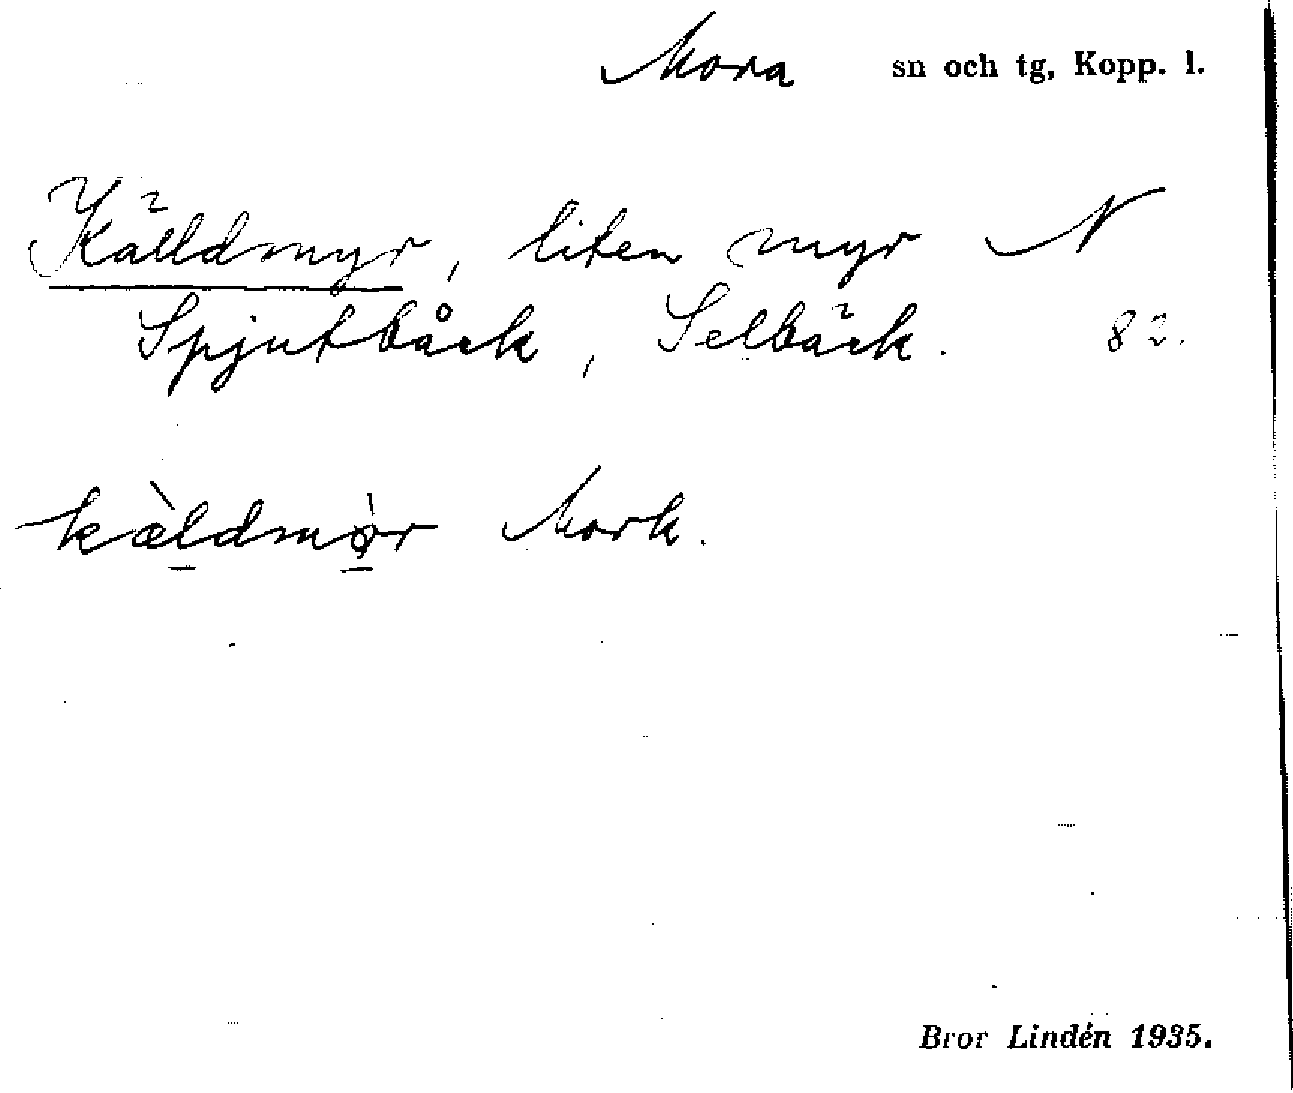 Mora sn och tg, Kopp. l.
Källdmyr, liten myr N
Spjutbåck, Selbäck. 82.
kæ̀ldmø̀r Mork.
Bror Lindén 1935.